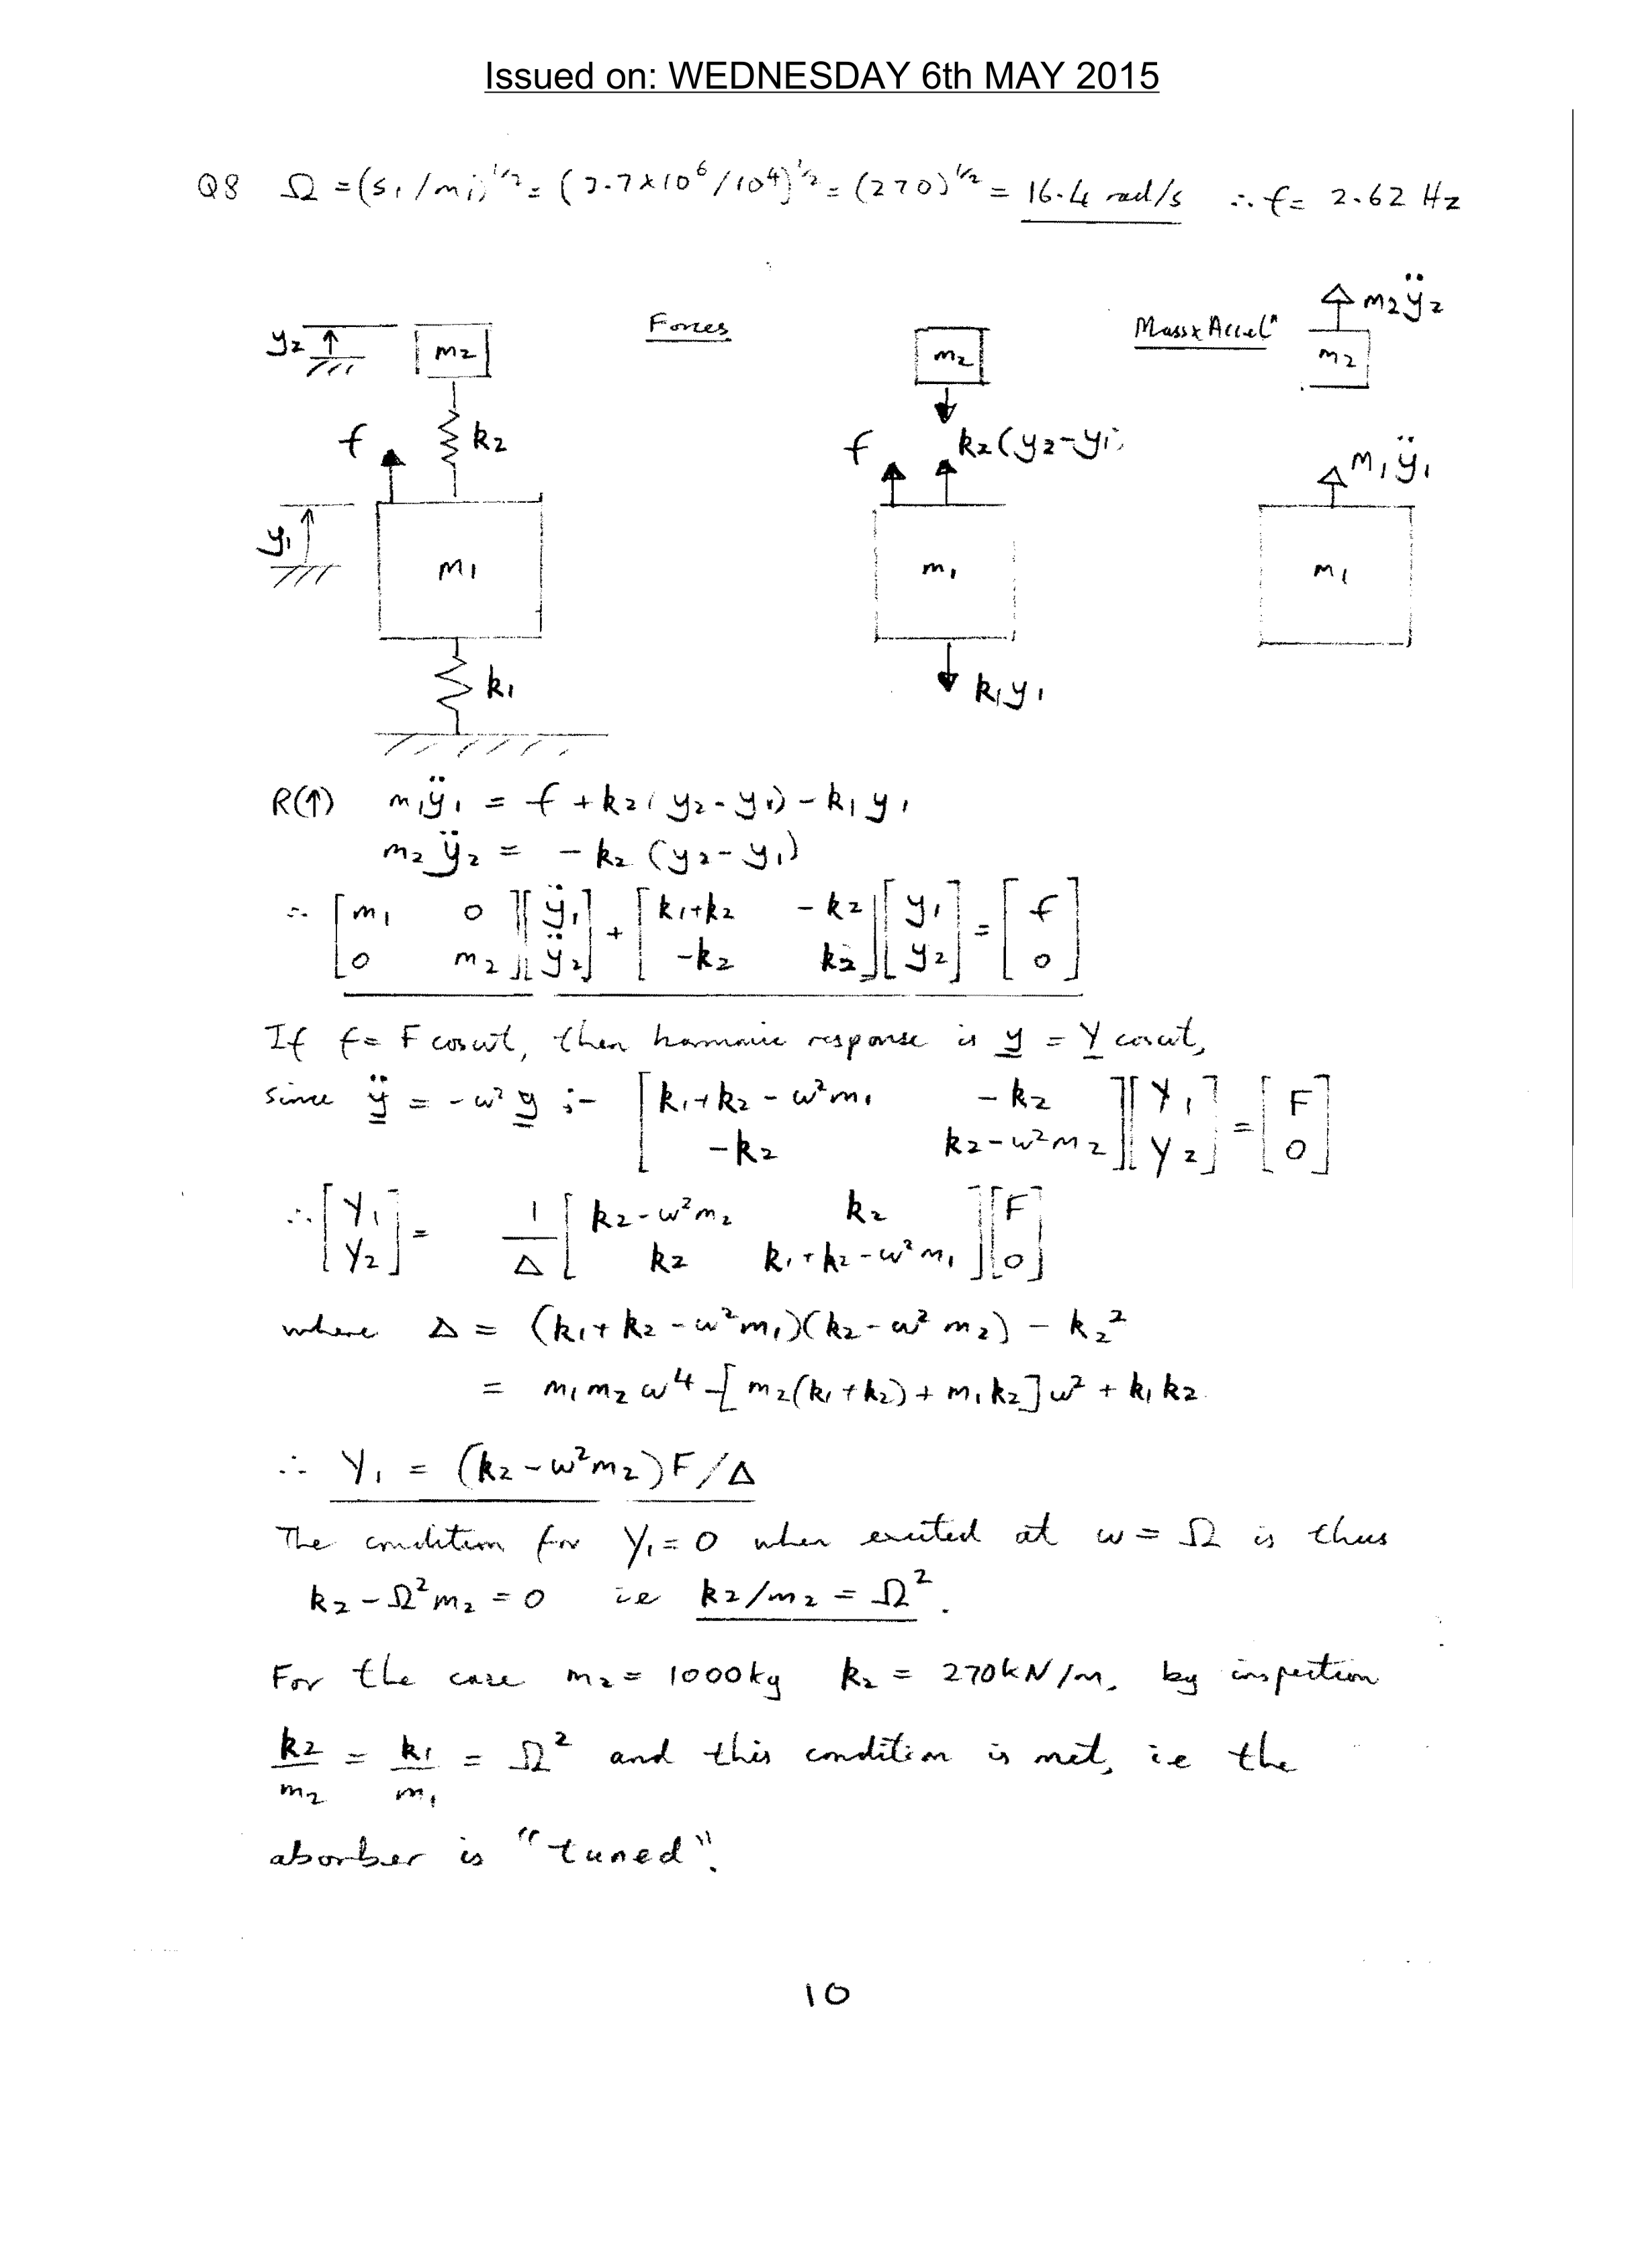 Issued on: WEDNESDAY 6th MAY 2015
Q8 Ω = (s₁/m₁)^1/2 = (2.7×10⁶/10⁴)^1/2 = (270)^1/2 = 16.4 rad/s ∴ f = 2.62 Hz
Forces
Mass×Accelⁿ
y₂ m₂ m₂ m₂ m₂ÿ₂
f k₂ f k₂(y₂-y₁) m₁ÿ₁
y₁ m₁ m₁ m₁
k₁ k₁y₁
R(↑) m₁ÿ₁ = f + k₂(y₂-y₁) - k₁y₁
m₂ÿ₂ = -k₂(y₂-y₁)
∴ [m₁ 0; 0 m₂][ÿ₁; ÿ₂] + [k₁+k₂ -k₂; -k₂ k₂][y₁; y₂] = [f; 0]
If f = F cosωt, then harmonic response is y = Y cosωt,
since ÿ = -ω²y ;- [k₁+k₂-ω²m₁ -k₂; -k₂ k₂-ω²m₂][Y₁; Y₂] = [F; 0]
∴ [Y₁; Y₂] = 1/Δ [k₂-ω²m₂ k₂; k₂ k₁+k₂-ω²m₁][F; 0]
where Δ = (k₁+k₂-ω²m₁)(k₂-ω²m₂) - k₂²
= m₁m₂ω⁴ - [m₂(k₁+k₂) + m₁k₂]ω² + k₁k₂
∴ Y₁ = (k₂-ω²m₂)F/Δ
The condition for Y₁=0 when excited at ω = Ω is thus
k₂-Ω²m₂ = 0 ie k₂/m₂ = Ω².
For the case m₂ = 1000kg k₂ = 270kN/m, by inspection
k₂/m₂ = k₁/m₁ = Ω² and this condition is met, ie the
aborber is "tuned".
10